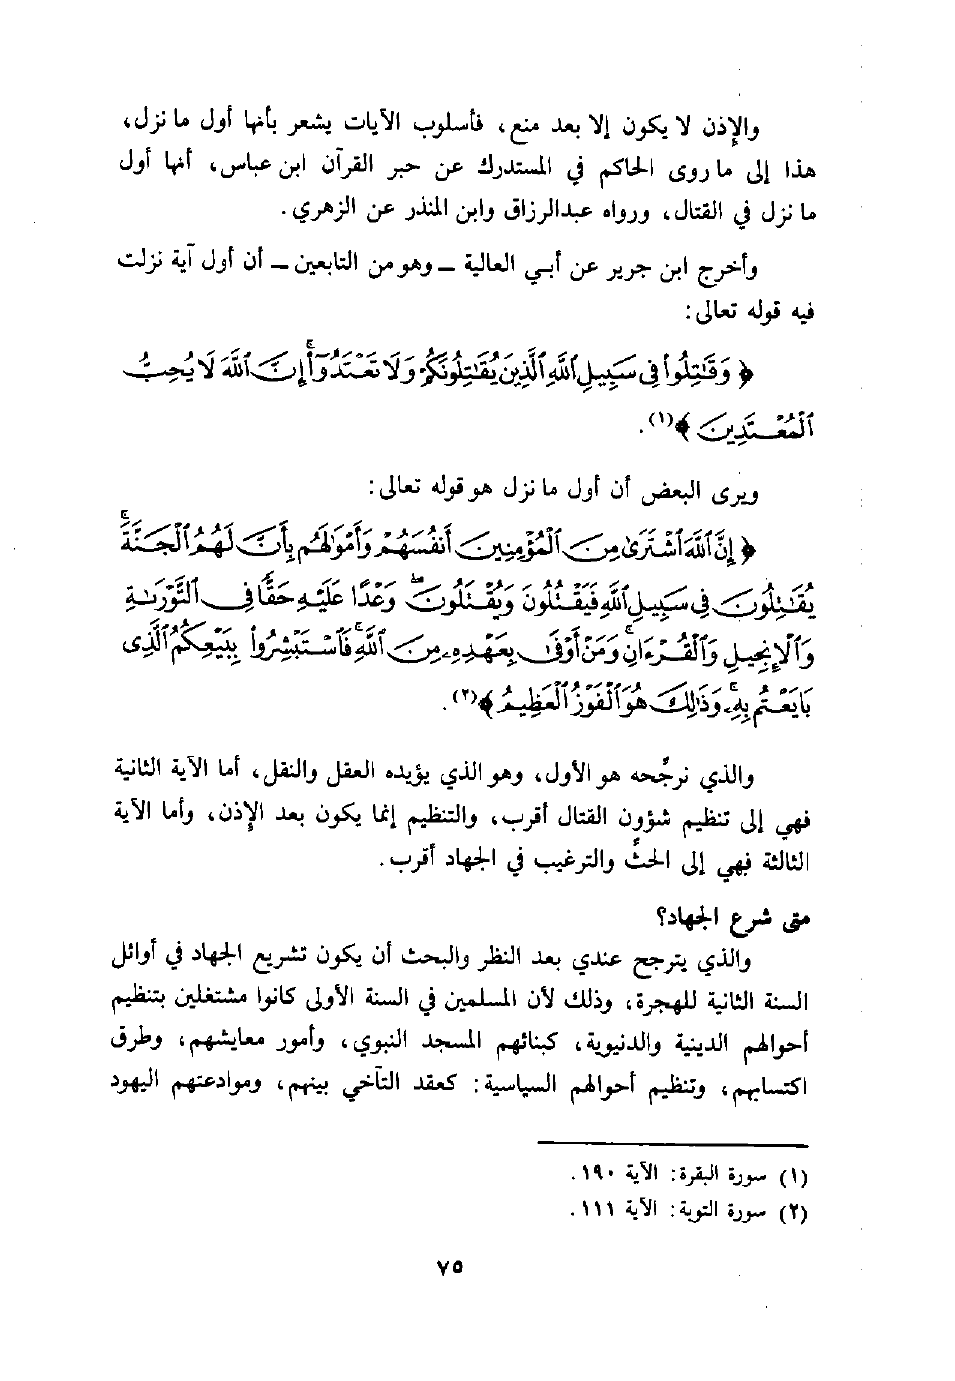 والإذن لا يكون إلا بعد منع، فأسلوب الآيات يشعر بأنها أول ما نزل،
هذا إلى ما روى الحاكم في المستدرك عن حبر القرآن ابن عباس، أنها أول
ما نزل في القتال، ورواه عبدالرزاق وابن المنذر عن الزهري.
وأخرج ابن جرير عن أبي العالية ـ وهو من التابعين ـ أن أول آية نزلت
فيه قوله تعالى:
﴿ وَقَٰتِلُوا۟ فِى سَبِيلِ ٱللَّهِ ٱلَّذِينَ يُقَٰتِلُونَكُمْ وَلَا تَعْتَدُوٓا۟ ۚ إِنَّ ٱللَّهَ لَا يُحِبُّ
ٱلْمُعْتَدِينَ ﴾(١).
ويرى البعض أن أول ما نزل هو قوله تعالى:
﴿ إِنَّ ٱللَّهَ ٱشْتَرَىٰ مِنَ ٱلْمُؤْمِنِينَ أَنفُسَهُمْ وَأَمْوَٰلَهُم بِأَنَّ لَهُمُ ٱلْجَنَّةَ ۚ
يُقَٰتِلُونَ فِى سَبِيلِ ٱللَّهِ فَيَقْتُلُونَ وَيُقْتَلُونَ ۖ وَعْدًا عَلَيْهِ حَقًّا فِى ٱلتَّوْرَىٰةِ
وَٱلْإِنجِيلِ وَٱلْقُرْءَانِ ۚ وَمَنْ أَوْفَىٰ بِعَهْدِهِۦ مِنَ ٱللَّهِ ۚ فَٱسْتَبْشِرُوا۟ بِبَيْعِكُمُ ٱلَّذِى
بَايَعْتُم بِهِۦ ۚ وَذَٰلِكَ هُوَ ٱلْفَوْزُ ٱلْعَظِيمُ ﴾(٢).
والذي نرجِّحه هو الأول، وهو الذي يؤيده العقل والنقل، أما الآية الثانية
فهي إلى تنظيم شؤون القتال أقرب، والتنظيم إنما يكون بعد الإذن، وأما الآية
الثالثة فهي إلى الحثِّ والترغيب في الجهاد أقرب.
متى شرع الجهاد؟
والذي يترجح عندي بعد النظر والبحث أن يكون تشريع الجهاد في أوائل
السنة الثانية للهجرة، وذلك لأن المسلمين في السنة الأولى كانوا مشتغلين بتنظيم
أحوالهم الدينية والدنيوية، كبنائهم المسجد النبوي، وأمور معايشهم، وطرق
اكتسابهم، وتنظيم أحوالهم السياسية: كعقد التآخي بينهم، وموادعتهم اليهود
(١) سورة البقرة: الآية ١٩٠.
(٢) سورة التوبة: الآية ١١١.
٧٥